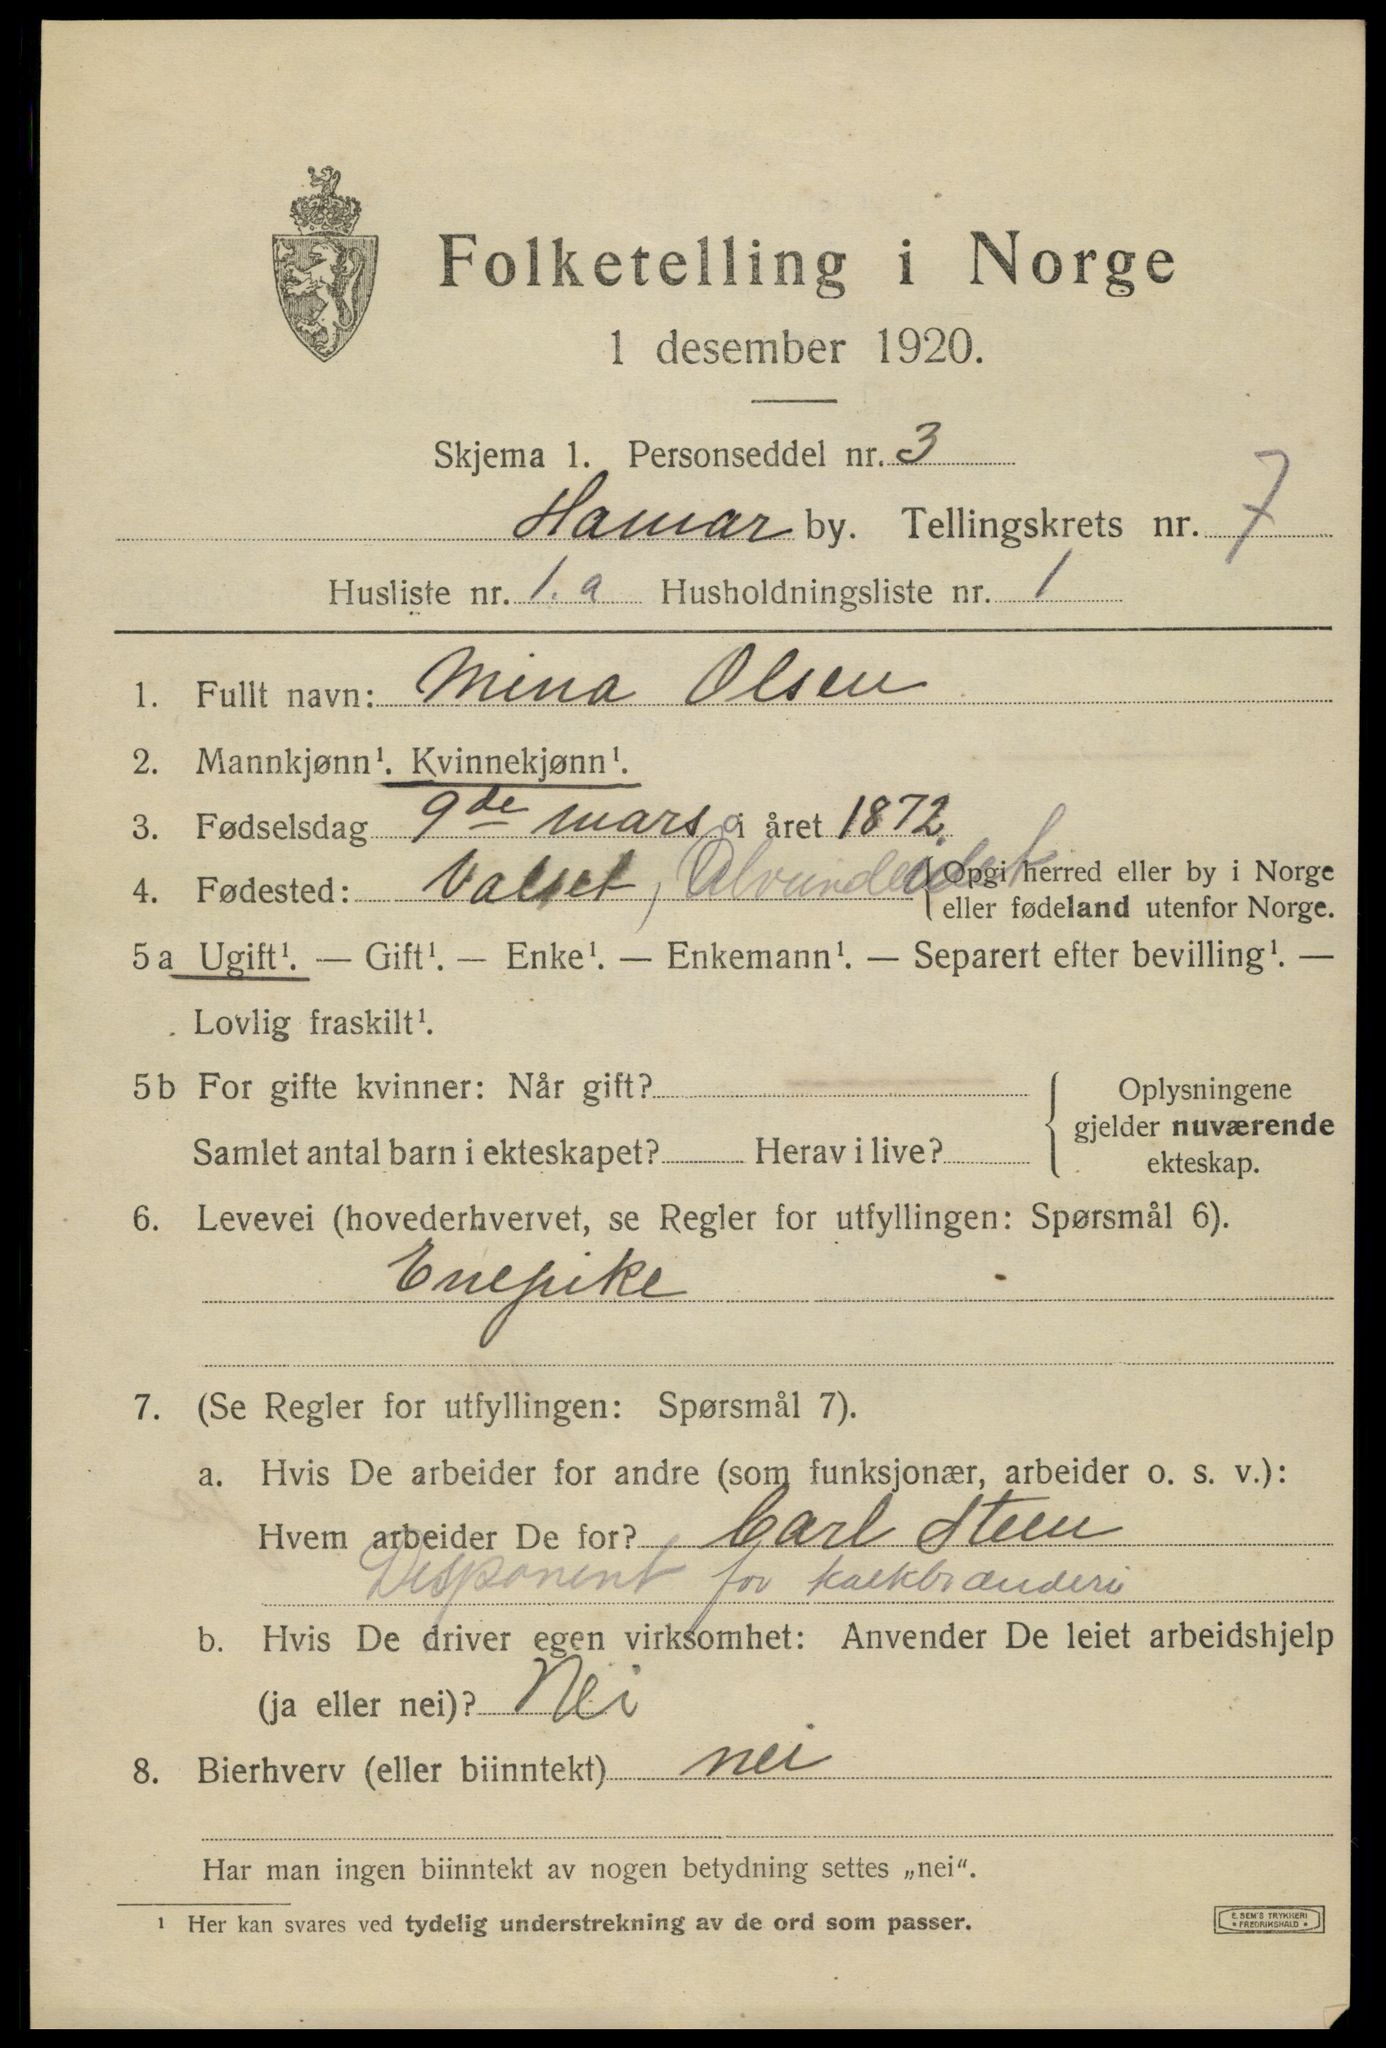 Folketelling i Norge
1 desember 1920.
Skjema 1. Personseddel nr. 3
Hamar by. Tellingskrets nr. 7
Husliste nr. 1.a Husholdningsliste nr. 1
1. Fullt navn: Mina Olsen
2. Mannkjønn¹. Kvinnekjønn¹.
3. Fødselsdag 9de mars i året 1872
4. Fødested: Valset, {Opgi herred eller by i Norge
eller fødeland utenfor Norge.
5a Ugift¹. — Gift¹. — Enke¹. — Enkemann¹. — Separert efter bevilling¹. —
Lovlig fraskilt¹.
5b For gifte kvinner: Når gift? { Oplysningene
gjelder nuværende
Samlet antal barn i ekteskapet? Herav i live? ekteskap.
6. Levevei (hovederhvervet, se Regler for utfyllingen: Spørsmål 6).
Enepike
7. (Se Regler for utfyllingen: Spørsmål 7).
a. Hvis De arbeider for andre (som funksjonær, arbeider o. s. v.):
Hvem arbeider De for? Carl Steen
Disponent for kalkbrænderi
b. Hvis De driver egen virksomhet: Anvender De leiet arbeidshjelp
(ja eller nei)? Nei
8. Bierhverv (eller biinntekt) nei
Har man ingen biinntekt av nogen betydning settes „nei“.
¹ Her kan svares ved tydelig understrekning av de ord som passer.
E. SEM'S TRYKKERI
• FREDRIKSHALD •